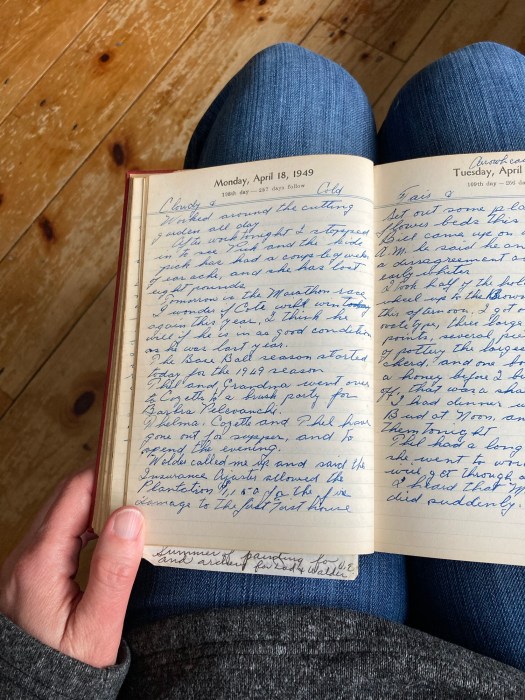 Monday, April 18, 1949
108th day — 257 days follow
Cloudy & Cold
Worked around the cutting
garden all day
After work tonight I stopped
in to see and the kids
had a couple of weeks
of earache, and she has lost
eight pounds.
Tomorrow is the Marathon race
I wonder if Cote will win today
again this year, I think he
will if he is in as good condition
as he was last year.
The Base Ball season started
today for the 1949 season
Phil and Grandma went over
to Cozette's a brush party for
Barbra
Thelma, Cozette and Phil have
gone out for supper, and to
spend the evening.
called me up and said the
Insurance allowed the
Plantation for the fire
damage to the
Summer of painting for
and for &
Arrowhead
Tuesday, April
109th day — 256 da
Fair &
Set out some pla
flower beds this
Bill came up on
A.M. he said he an
a disagreement a
I took half of the
wheel up to the
this afternoon, I got
large
points, several pie
of pottery the large
cherd, and one
a honey before I
off, that was a sha
I had dinner
Bud at Noon, an
them tonight
Phil had a long
she went to wor
will get through
I heard that
died suddenly.